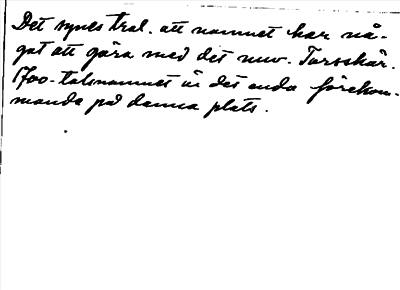 Det synes trol. att namnet har nå-
got att göra med det nuv. Torsskär.
1700-talsnamnet är det enda förekom-
mande på denna plats.